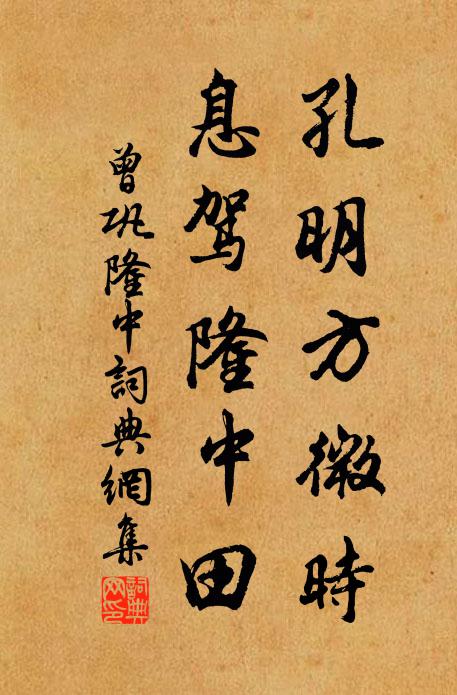 孔明方微時
息驾隆中田
曾巩隆中詞典網集
詞典网印